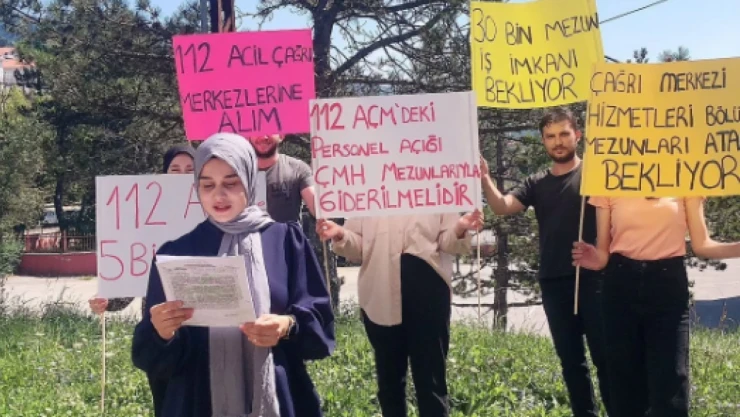 112 ACİL ÇAĞRI
MERKEZLERİNE
ALIM
30 BİN MEZUN
İŞ İMKANI
BEKLİYOR
112 AÇM'DEKİ
PERSONEL AÇIĞI
ÇMH MEZUNLARIYLA
GİDERİLMELİDİR
ÇAĞRI MERKEZİ
HİZMETLERİ BÖLÜ
MEZUNLARI ATA
BEKLİYOR
112 A
5 Bİ